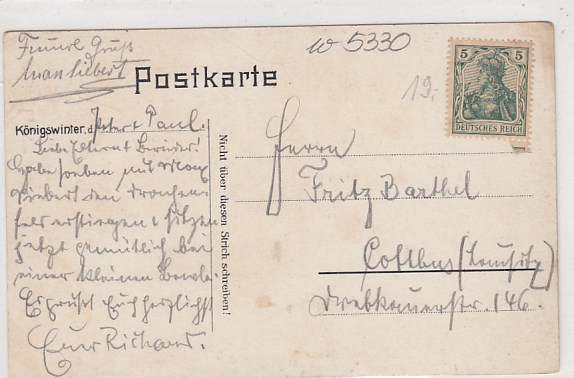 Freundl. Gruß
Max Siebert
w 5330
19,-
Postkarte
5 5
DEUTSCHES REICH
Königswinter, d. Peter + Paul.
Liebe Eltern + Brüder!
Habe soeben mit Max
Siebert den Drachen-
fels erstiegen + sitzen
jetzt gemütlich bei
einer kleinen Bowle.
Es grüsst Euch herzlichst
Euer Richard.
Nicht über diesen Strich schreiben!
Herrn
Fritz Barthel
Cottbus (Lausitz)
Drebkauerstr. 146.